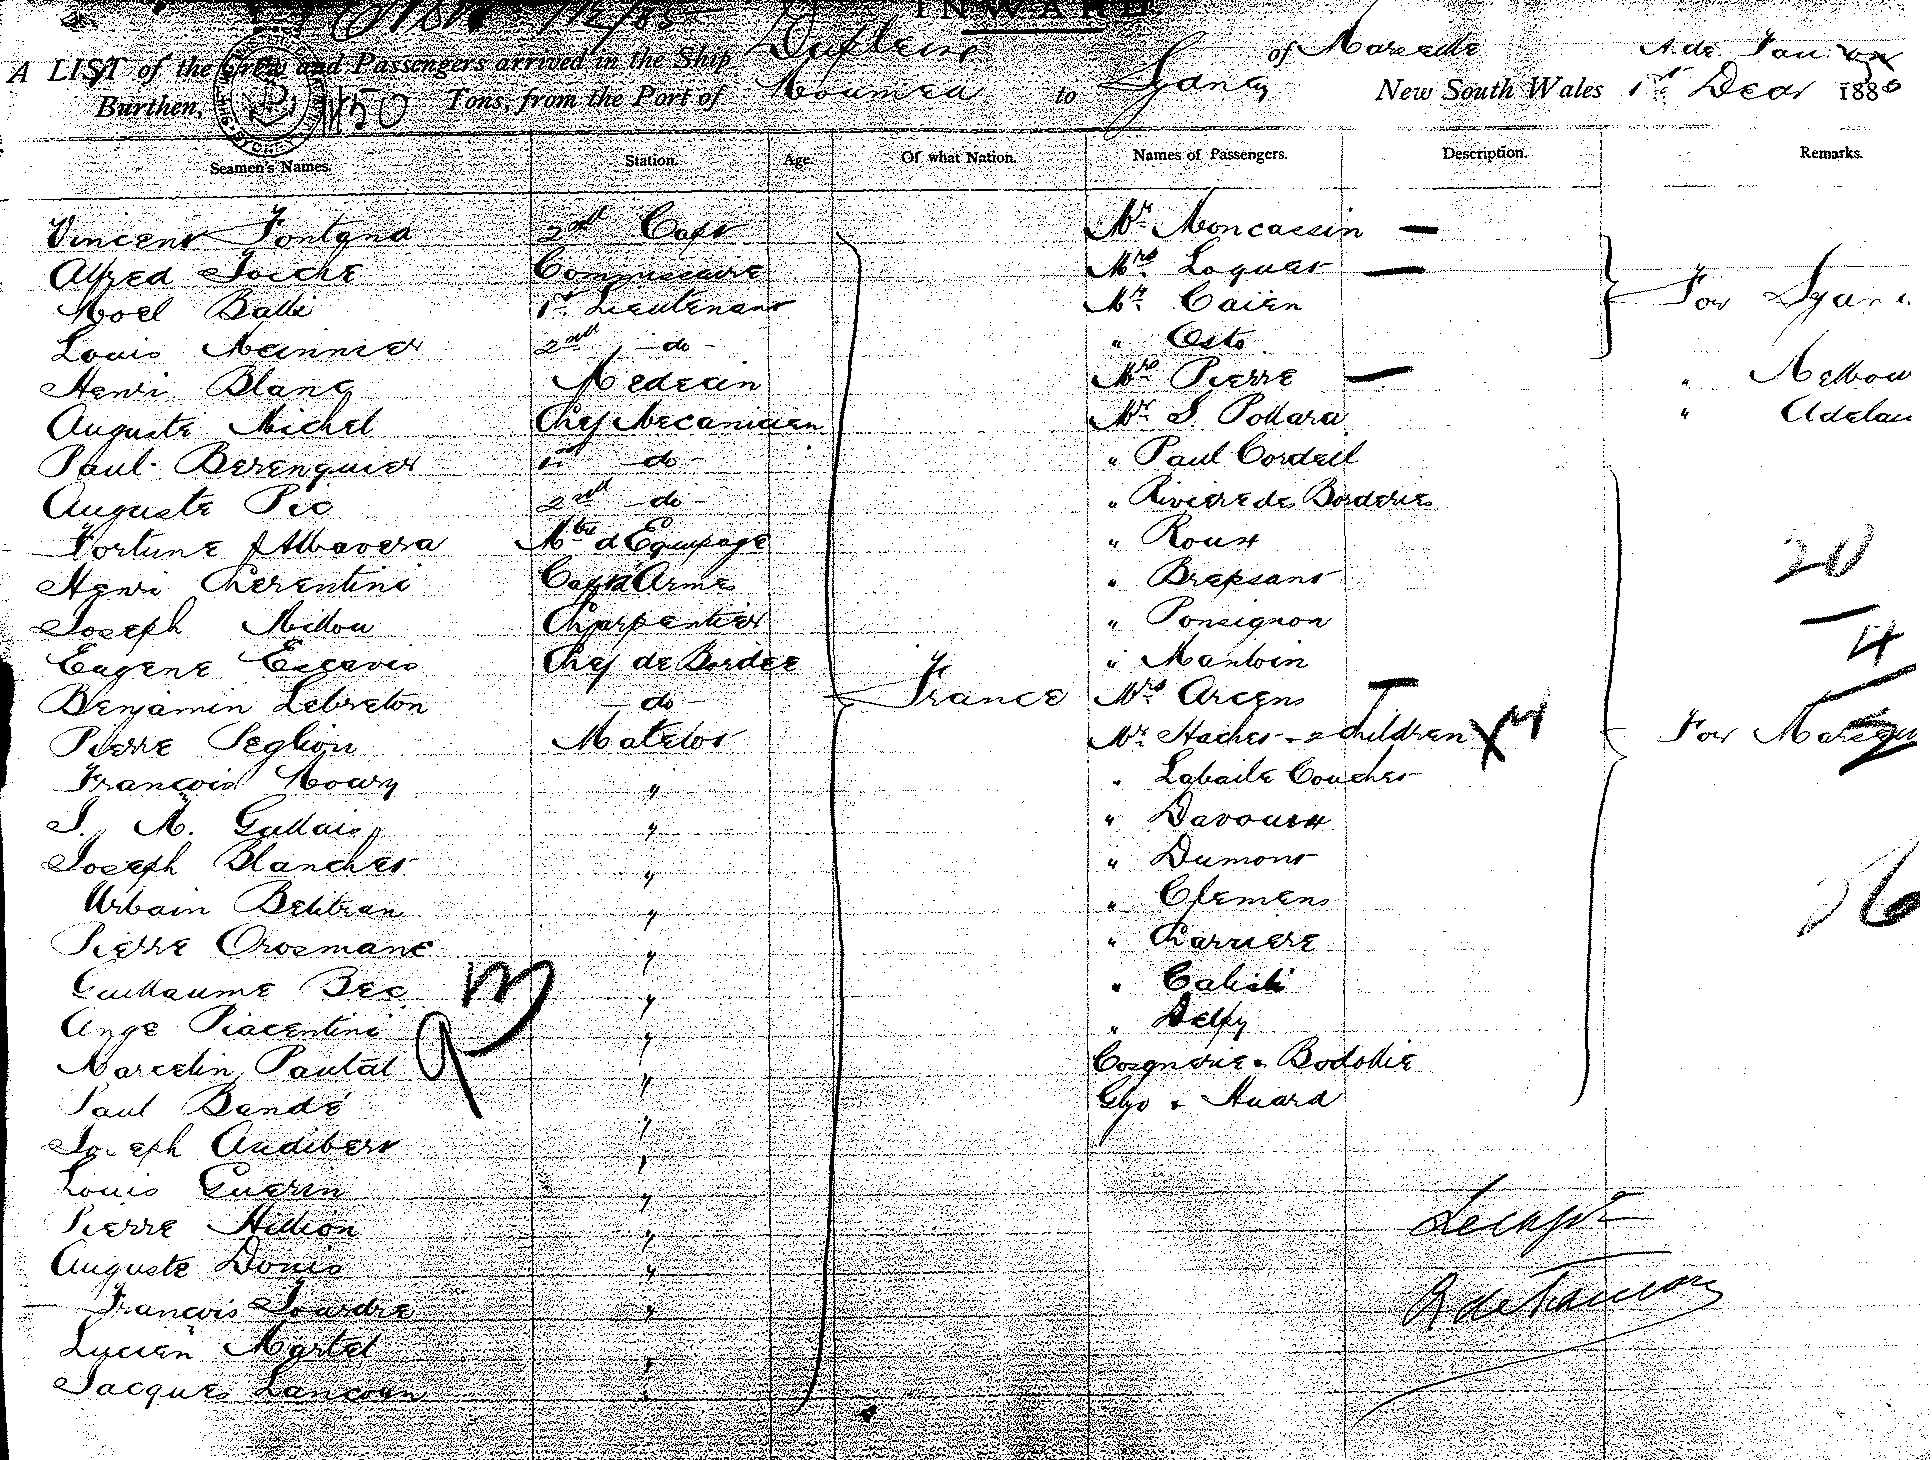 INWARD.
A LIST of the Crew and Passengers arrived in the Ship Dupleix of Marseille A. de Fauron
Burthen, 1450 Tons, from the Port of Noumea to Sydney New South Wales 1st Decr 188
Seamen's Names. Station. Age Of what Nation. Names of Passengers. Description. Remarks.
Vincent Fontana 2nd Capt Mr Moncassin —
Alfred Commissaire Mrs Loquet —
Noel Balli 1st Lieutenant Mr Caïen For
Louis Meinnier 2nd - do - " Osto
Henri Blanc Medecin Mrs Pierre — " Melbou
Auguste Michel Chef Mecanicien Mr S. Pollara " Adelai
Paul Berenguier 1r - do - " Paul Cordeil
Auguste Pic 2nd - do - " Riviere de Borderies
Fortune Albavera Mtre d'Equipage " Roux 20
Henri Cherentini Capt d'Arme " Brepsant
Joseph Millou Charpentier " Ponsignon 4
Eugene Escavis Chef de Bordee " Mantoin
Benjamin Lebreton - do - France Mrs Arcens
Pierre Peglion Matelot Mr Haches - 2 children For
Francois Noury "
" Labaile Couches
J. M. Gallais " " Davoux
Joseph Blanchet " " Dumont
Urbain Belitran " " Clemens 26
Pierre Orosmane " " Charriere
Guillaume Bec " "
Ange Piacentini " " Delpy
Marcelin Pautal " Cosgnerie & Bodokie
Paul Bandé " Glyo & Huard
Joseph Audibert "
Louis Guerin "
Pierre Hillion " Le capt
Auguste Donis "
Francois Jourdre "
Lucien Martel "
Jacques Lancoun "